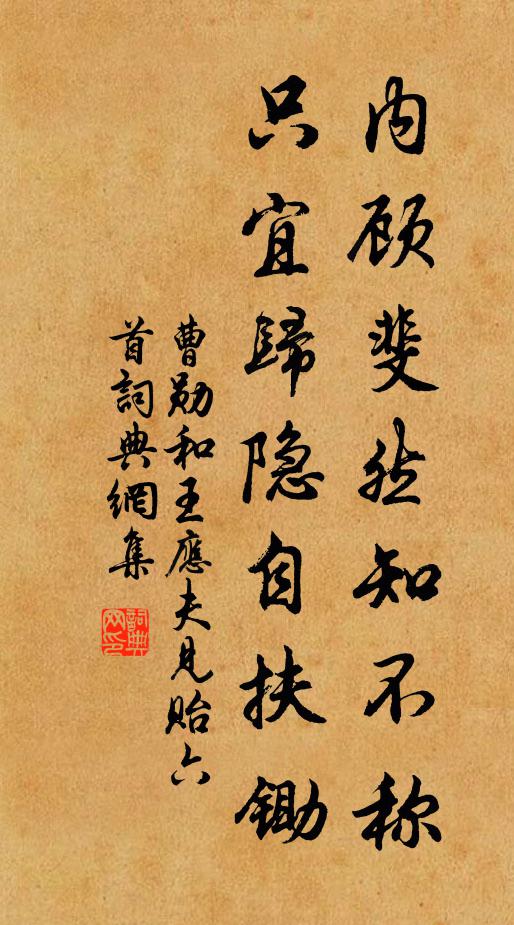 内顾斐然知不称
只宜歸隐自扶锄
曹勋和王應夫見貽六
首詞典網集
詞典
网印